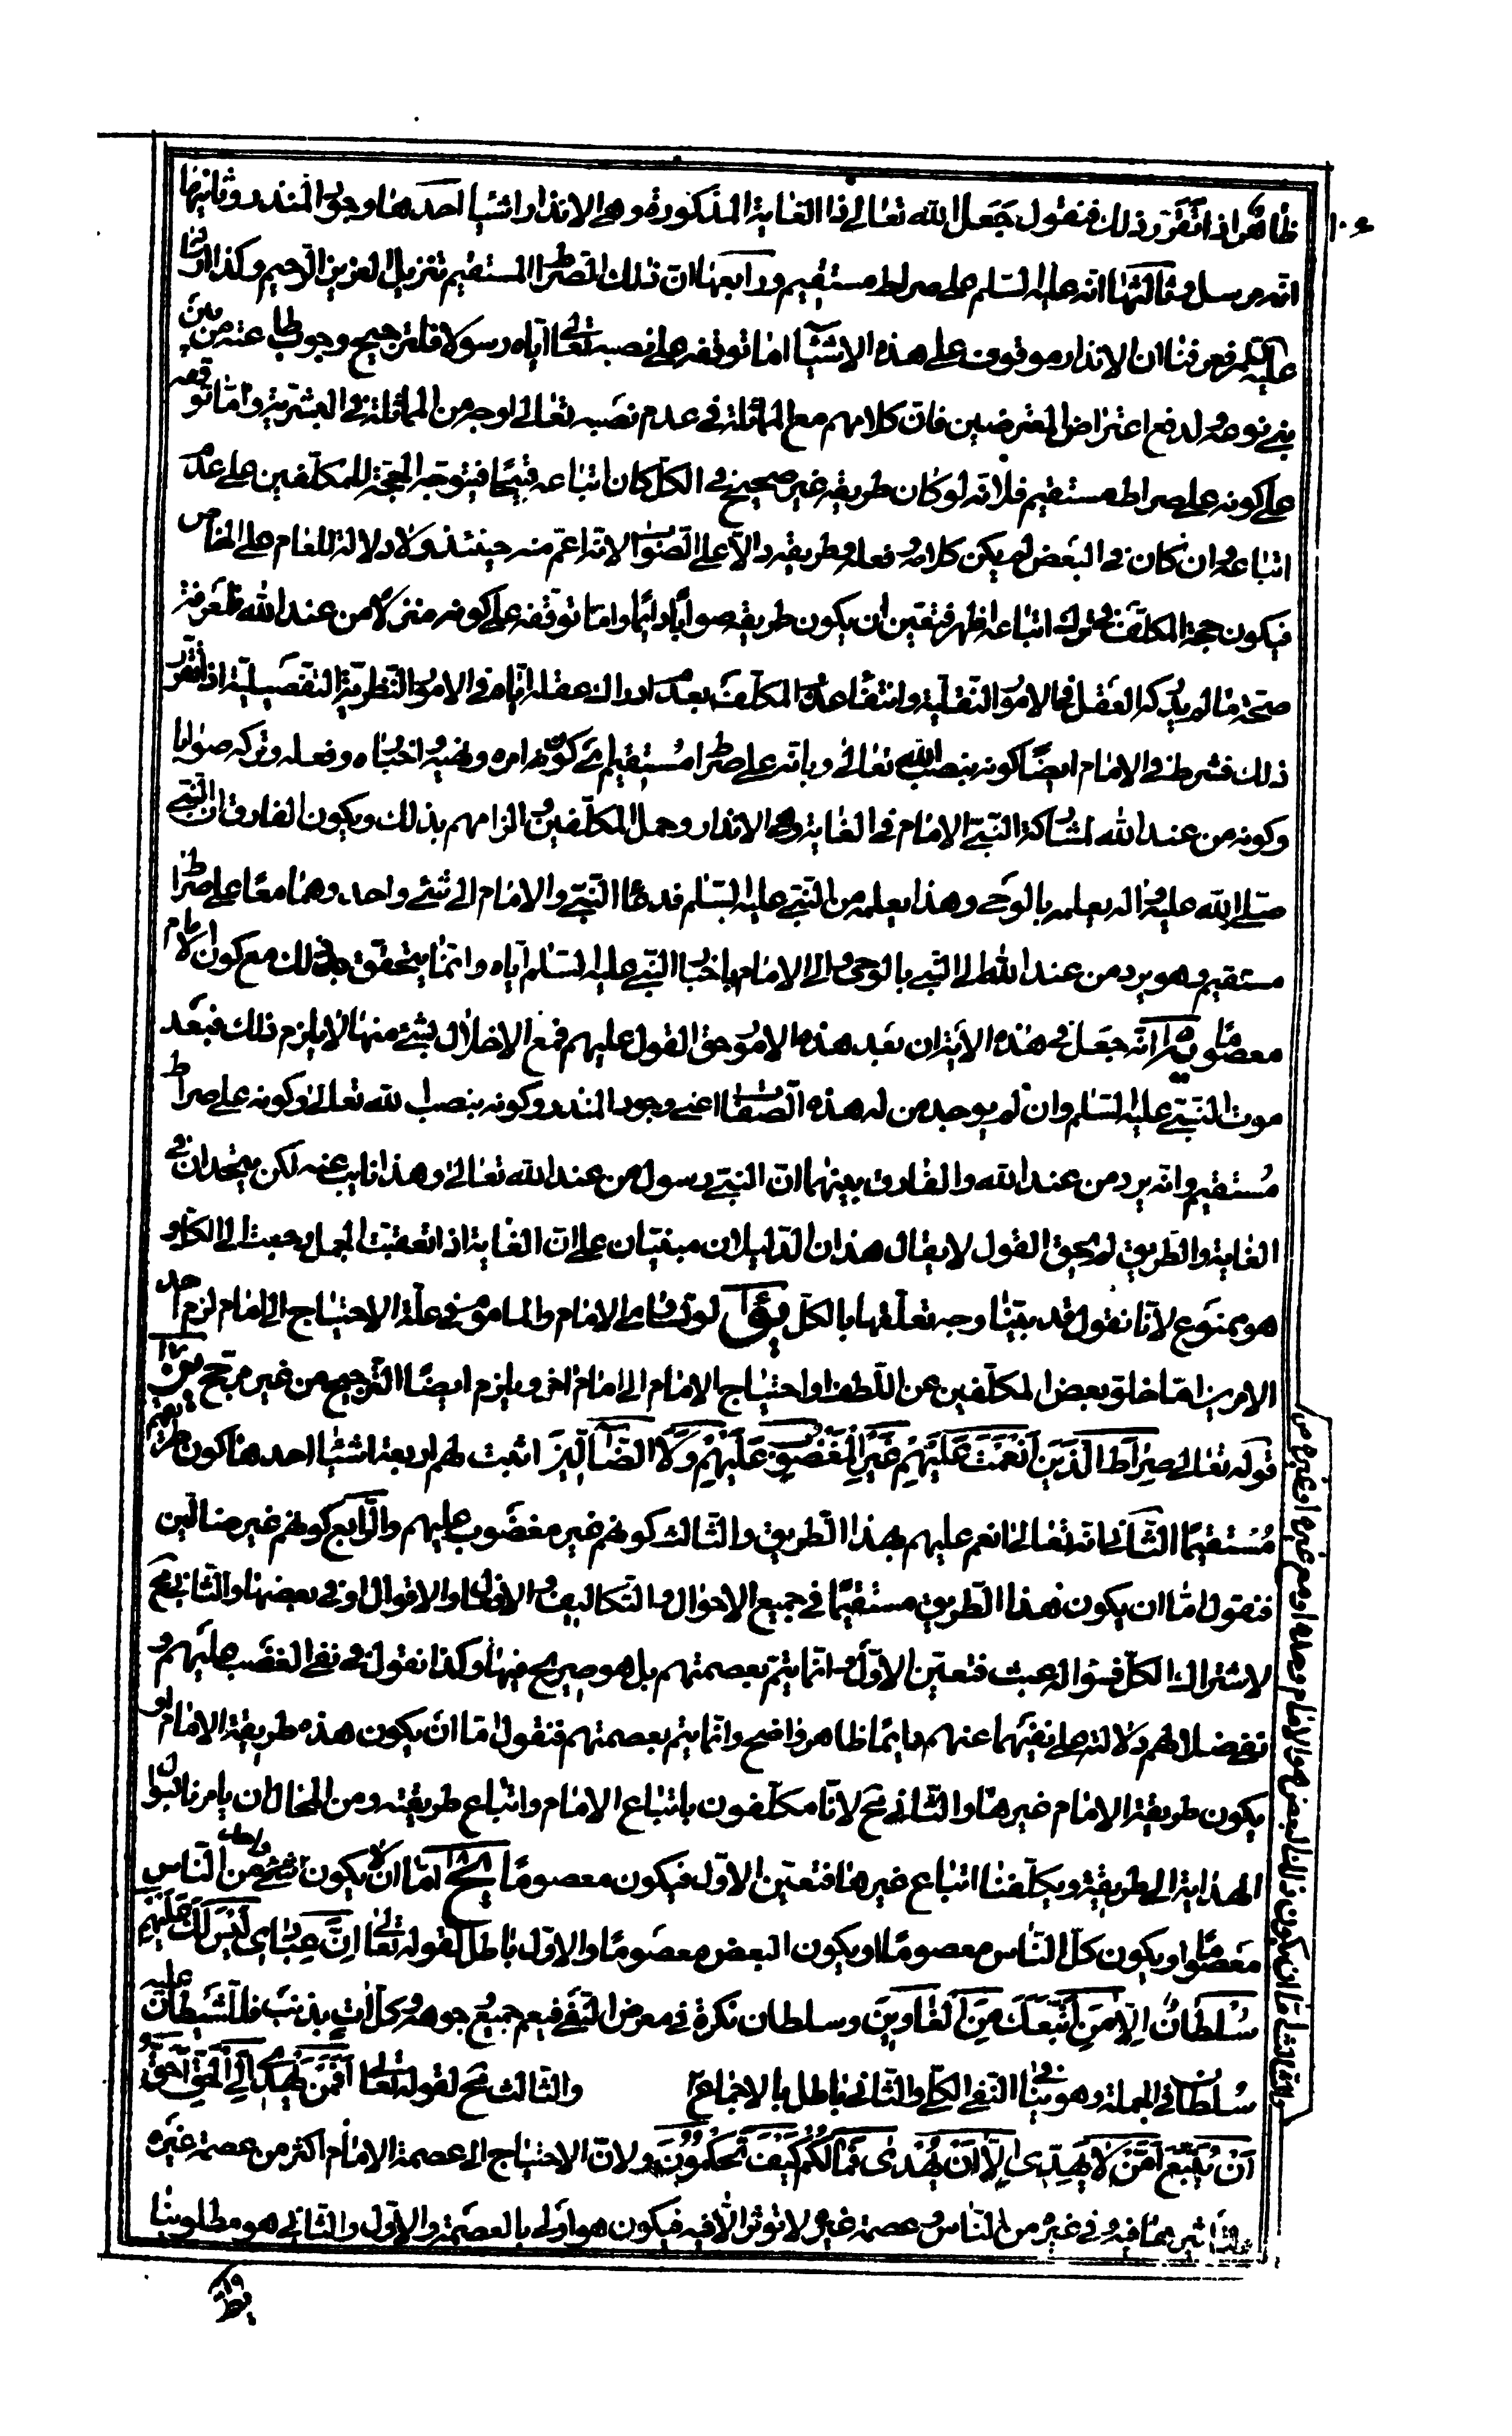 ظاهر اذا تقرر ذلك فنقول جعل الله تعالى ذا الغاية المذكورة وهى الانذار اشياء احدها وجود المنذر وثانيها
انه مرسل وثالثها انه عليه السلم على صراط مستقيم ورابعها ان ذلك الصراط المستقيم تنزيل العزيز الرحيم وكذا
عليه فعرفنا ان الانذار موقوف على هذه الاشياء اما توقفه على نصبه تعالى اياه رسولا فلترجيح وجوب طاعته من بين
بنى نوعه ولدفع اعتراض المعترضين فان كلامهم مع المماثلة فى عدم نصبه تعالى اوجه من المماثلة فى البشرية واما توقفه
على كونه على صراط مستقيم فلانه لو كان طريقه غير صحيح فى الكل كان اتباعه قبيحا فيتوجه الحجة للمكلفين على عدم
اتباعه وان كان فى البعض لم يكن كلامه وفعله وطريقه دالا على الصواب لانه اعم منه حينئذ ولا دلالة للعام على الخاص
فيكون حجة المكلف فى ترك اتباعه اظهر فتعين ان يكون طريقه صوابا دائما واما توقفه على كونه منزلا من عند الله فلمعرفة
صحة ما لم يدركه العقل فى الامور النقلية وانتفاء عذر المكلف بعدم ادراك عقله اياه فى الامور النظرية التفصيلية اذا تقرر
ذلك فشرط فى الامام ايضا كونه بنصب الله تعالى وبانه على صراط مستقيم فى كون امره ونهيه واخباره وفعله وتركه صوابا
وكونه من عند الله لمشاركة النبى الامام فى الغاية وهى الانذار وحمل المكلفين والزامهم بذلك ويكون الفارق ان النبى
صلى الله عليه واله يعلمه بالوحى وهذا يعلمه من النبى عليه السلم فدعاء النبى والامام الى شئ واحد وهما معا على صراط
مستقيم وهو يرد من عند الله الى النبى بالوحى والى الامام باخبار النبى عليه السلم اياه وانما يتحقق ذلك مع كون الامام
معصوما يو انه جعل فى هذه الاية ان بعد هذه الامور حق القول عليهم فمع الاخلال بشئ منها لا يلزم ذلك فبعد
موت النبى عليه السلم وان لم يوجد من له هذه الصفات اعنى وجود المنذر وكونه بنصب الله تعالى وكونه على صراط
مستقيم وانه يرد من عند الله والفارق بينهما ان النبى رسول من عند الله تعالى وهذا نايب عنه لكن يتحدان فى
الغاية والطريق لم يحق القول لا يقال هذان الدليلان مبنيان على ان الغاية اذا تعقبت الجمل رجعت الى الكل و
هو ممنوع لانا نقول قد بينا وجه تعلقها بالكل يز لو تساوى الامام والماموم فى علة الاحتياج الى امام لزم احد
الامرين اما خلو بعض المكلفين عن اللطف او احتياج الامام الى امام اخر ويلزم ايضا الترجيح من غير مرجح
قوله تعالى صراط الذين انعمت عليهم غير المغضوب عليهم ولا الضالين اثبت لهم اربعة اشياء احدها كون طريقهم
مستقيما الثانى انه تعالى انعم عليهم بهذا الطريق والثالث كونهم غير مغضوب عليهم والرابع كونهم غير ضالين
فنقول اما ان يكون هذا الطريق مستقيما فى جميع الاحوال والتكاليف والافعال والاقوال او فى بعضها والثانى مح
لاشتراك الكل فسؤاله عبث فتعين الاول وانما يتم بعصمتهم بل هو صريح فيها وكذا نقول فى نفى الغضب عليهم و
نفى ضلالهم دلالته على نفيهما عنهم دائما ظاهر واضح وانما يتم بعصمتهم فنقول اما ان يكون هذه طريقة الامام او
يكون طريقة الامام غيرها والثانى مح لانا مكلفون باتباع الامام واتباع طريقته ومن المحال ان يامرنا بسؤال
الهداية الى طريقة ويكلفنا اتباع غيرها فتعين الاول فيكون معصوما يح اما ان لا يكون شئ من الناس
معصوما او يكون كل الناس معصوما او يكون البعض معصوما والاول باطل لقوله تعالى ان عبادى ليس لك عليهم
سلطان الا من اتبعك من الغاوين وسلطان نكرة فى معرض النفى فيعم جميع وجوهه وكل ات بذنب فللشيطان عليه
سلطان فى الجملة وهو ينافى النفى الكلى والثانى باطل بالاجماع والثالث مح لقوله تعالى افمن يهدى الى الحق احق
ان يتبع امن لا يهدى الا ان يهدى فما لكم كيف تحكمون ولان الاحتياج الى عصمة الامام اكثر من عصمة غيره
فيه وفى غيره من الناس وعصمة غيره لا تؤثر الا فيه فيكون هو اولى بالعصمة والاول والثانى هو مطلوبنا